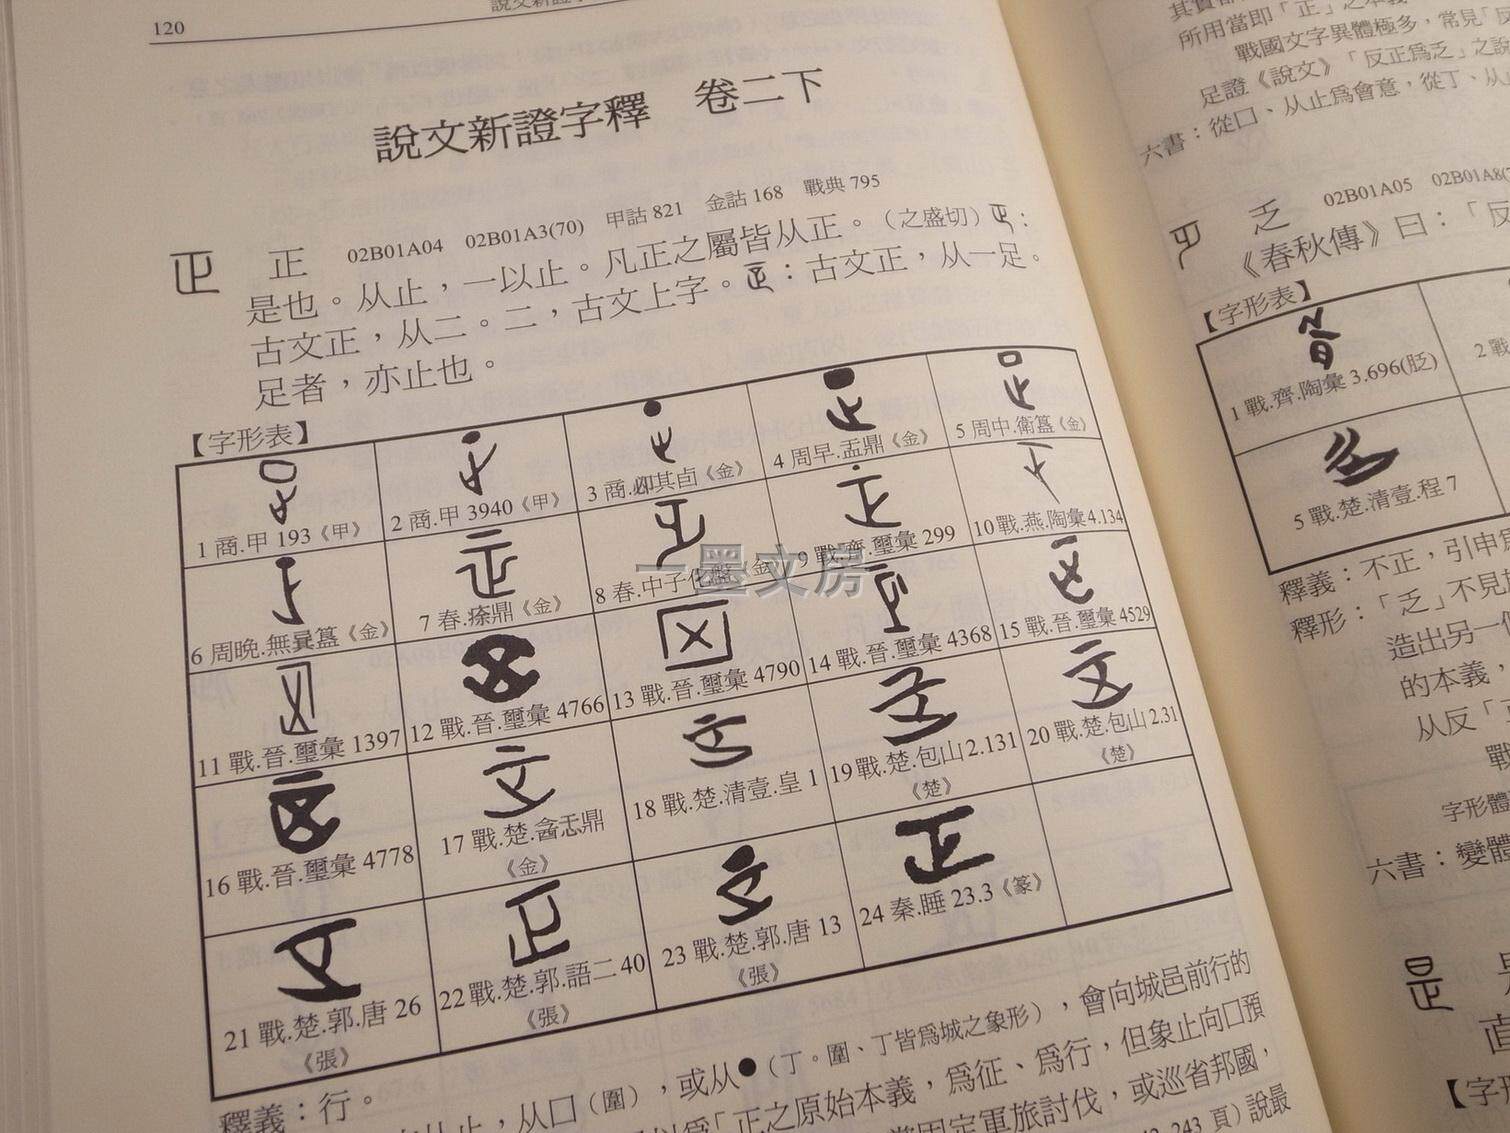 120
說文新證字釋 卷二下
正 02B01A04 02B01A3(70) 甲詁 821 金詁 168 戰典 795
是也。从止，一以止。凡正之屬皆从正。（之盛切）：
古文正，从二。二，古文上字。：古文正，从一足。
足者，亦止也。
【字形表】
1 商.甲 193《甲》
2 商.甲 3940《甲》
3 商.卲其卣《金》
4 周早.盂鼎《金》
5 周中.衛簋《金》
6 周晚.無㠱簋《金》
7 春.鼎《金》
8 春.中子化盤《金》
9 戰.齊.璽彙 299
10 戰.燕.陶彙 4.134
11 戰.晉.璽彙 1397
12 戰.晉.璽彙 4766
13 戰.晉.璽彙 4790
14 戰.晉.璽彙 4368
15 戰.晉.璽彙 4529
16 戰.晉.璽彙 4778
17 戰.楚.酓忎鼎《金》
18 戰.楚.清壹.皇 1
19 戰.楚.包山 2.131《楚》
20 戰.楚.包山 2.31《楚》
21 戰.楚.郭.唐 26《張》
22 戰.楚.郭.語二 40《張》
23 戰.楚.郭.唐 13《張》
24 秦.睡 23.3《篆》
釋義：行。
从止，从囗（圍），或从●（丁。圍、丁皆為城之象形），會向城邑前行的
「正之原始本義，為征、為行，但象止向囗預
固定軍旅討伐，或巡省邦國，
243 頁）說最
一墨文房
所用當即「正」之本義
戰國文字異體極多，常見「反
足證《說文》「反正為乏」之說
六書：從囗、从止為會意，從丁、从
乏 02B01A05 02B01A8(7
《春秋傳》曰：「反
【字形表】
1 戰.齊.陶彙 3.696(貶)
2 戰
5 戰.楚.清壹.程 7
釋義：不正，引申為
釋形：「乏」不見於
造出另一個
的本義，
从反「正
戰
字形體
六書：變體
是
直
【字形